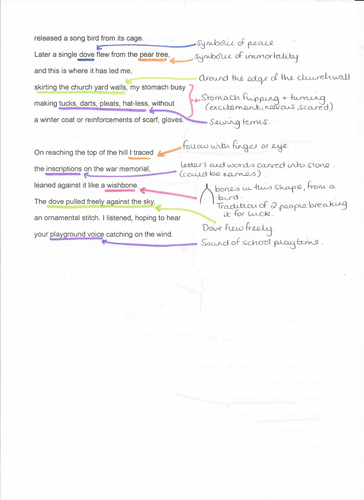 released a song bird from its cage.
Symbolic of peace
Later a single dove flew from the pear tree,
symbolic of immortality
and this is where it has led me,
Around the edge of the church wall
skirting the church yard walls, my stomach busy
making tucks, darts, pleats, hat-less, without
Stomach flipping + turning
(excitement, nervous, scared)
a winter coat or reinforcements of scarf, gloves.
Sewing terms.
On reaching the top of the hill I traced
follow with finger or eye
the inscriptions on the war memorial,
letters and words carved into stone
(could be names).
leaned against it like a wishbone.
bones in this shape, from a
bird.
Tradition of 2 people breaking
it for luck.
The dove pulled freely against the sky,
Dove flew freely.
an ornamental stitch. I listened, hoping to hear
your playground voice catching on the wind.
Sound of school playtime.